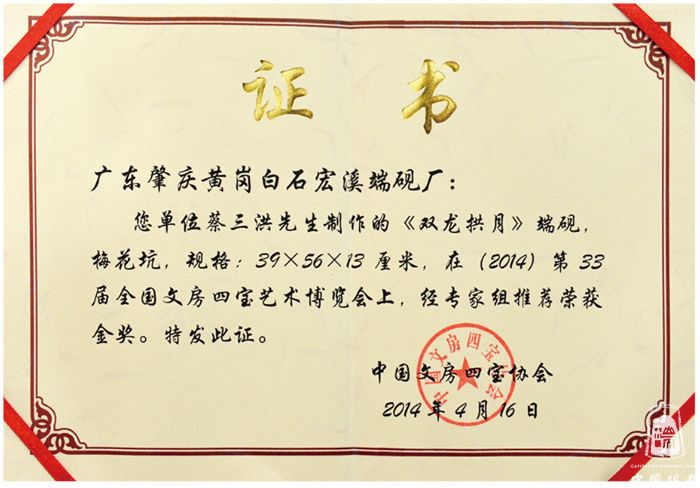 证书
广东肇庆黄岗白石宏溪端砚厂：
您单位蔡三洪先生制作的《双龙拱月》端砚，
梅花坑，规格：39×56×13 厘米，在 (2014) 第 33
届全国文房四宝艺术博览会上，经专家组推荐荣获
金奖。特发此证。
中国文房四宝协会
中国文房四宝协会
2014 年 4 月 16 日